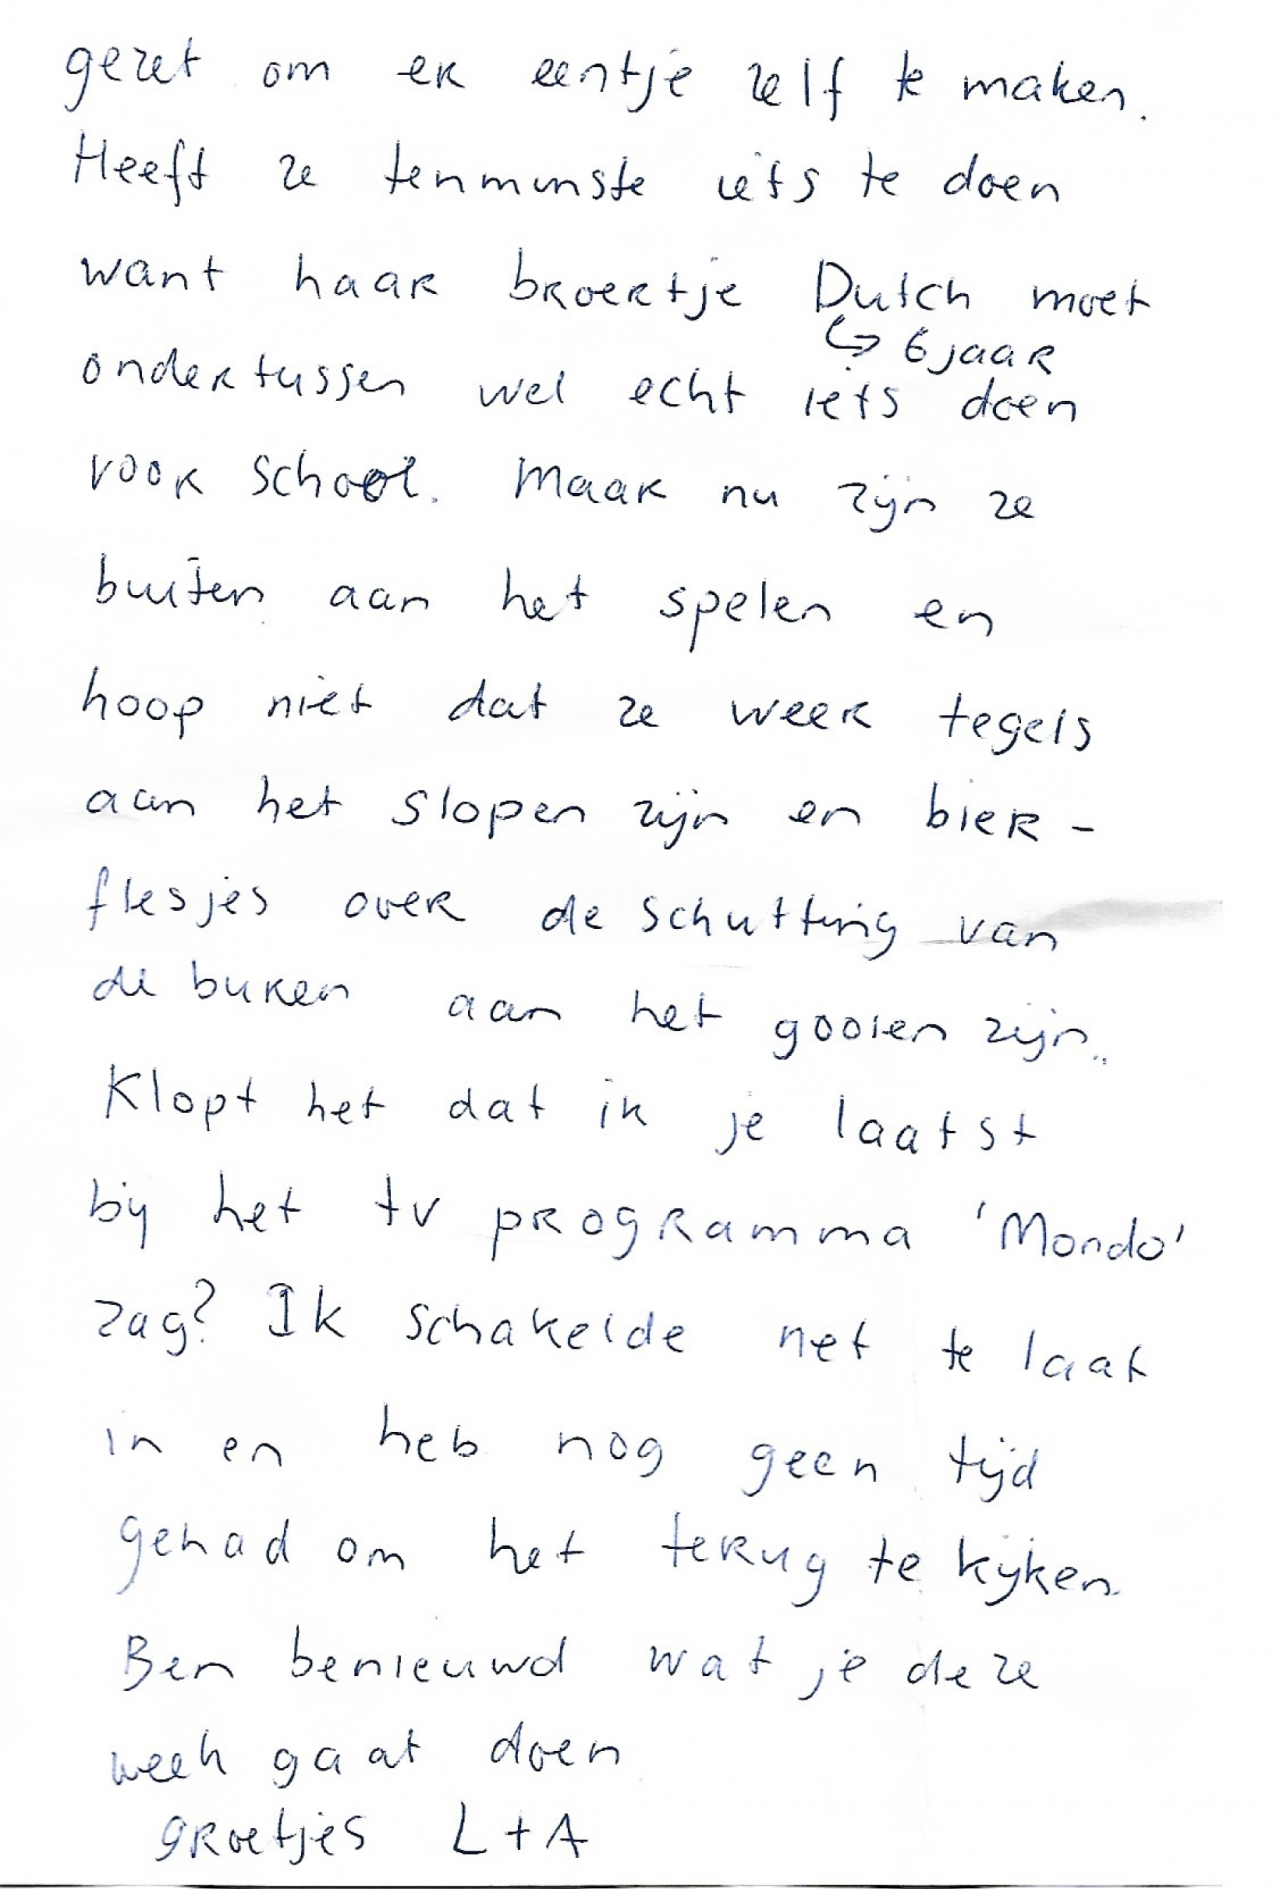 gezet om er eentje zelf te maken.
Heeft ze tenminste iets te doen
want haar broertje Dutch moet
↳ 6 jaar
ondertussen wel echt iets doen
voor school. Maar nu zijn ze
buiten aan het spelen en
hoop niet dat ze weer tegels
aan het slopen zijn en bier-
flesjes over de schutting van
de buren aan het gooien zijn..
Klopt het dat ik je laatst
bij het tv programma 'Mondo'
zag? Ik schakelde net te laat
in en heb nog geen tijd
gehad om het terug te kijken.
Ben benieuwd wat je deze
week gaat doen
groetjes L+A